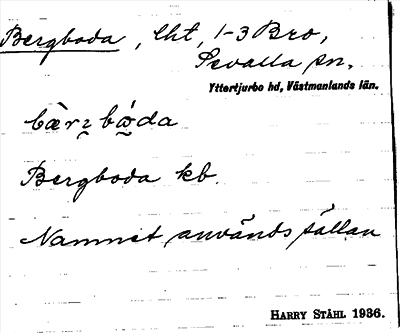 Bergboda, lht, 1-3 Bro,
Sevalla sn.
Yttertjurbo hd, Västmanlands län.
bæ̀rʒbóda
Bergboda kb.
Namnet används sällan
HARRY STÅHL 1936.